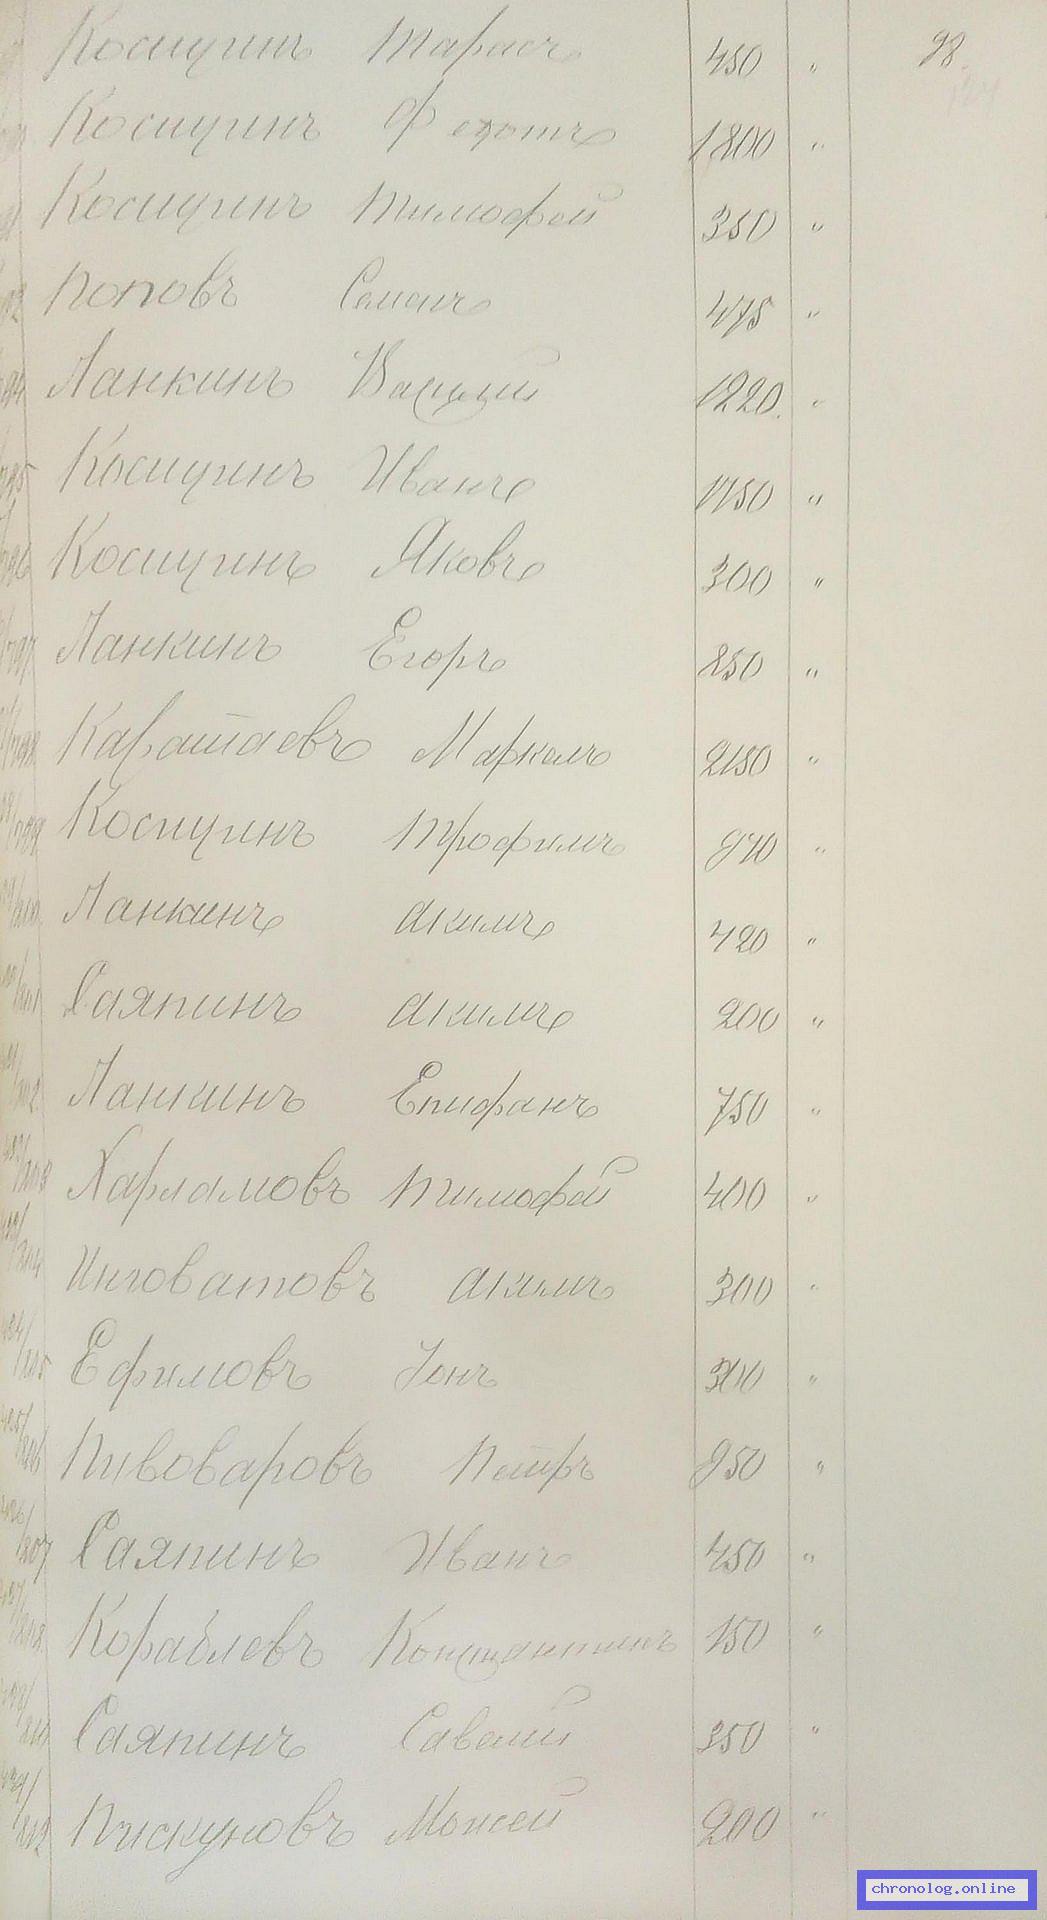 Косицинъ Тарасъ 450 " 98
Косицинъ Федотъ 1800 "
Косицинъ Тимофей 350 "
Поповъ Семенъ 475 "
Ланкинъ Василий 1220 "
Косицинъ Иванъ 1750 "
Косицинъ Яковъ 300 "
Ланкинъ Егоръ 850 "
Каратаевъ Маркелъ 2150 "
Косицинъ Трофимъ 970 "
Ланкинъ Акимъ 420 "
Саяпинъ Акимъ 200 "
Ланкинъ Епифанъ 750 "
Харламовъ Тимофей 400 "
Инговатовъ Акимъ 300 "
Ефимовъ Іонъ 300 "
Пивоваровъ Петръ 950 "
Саяпинъ Иванъ 450 "
Кораблевъ Константинъ 150 "
Саяпинъ Савелий 350 "
Пискуновъ Моисей 200 "
chronolog.online